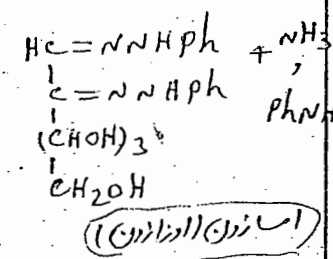 HC=NNHPh + NH3 ;
C=NNHPh PhNH
(CHOH)3
CH2OH
اسازون (اوزازون)